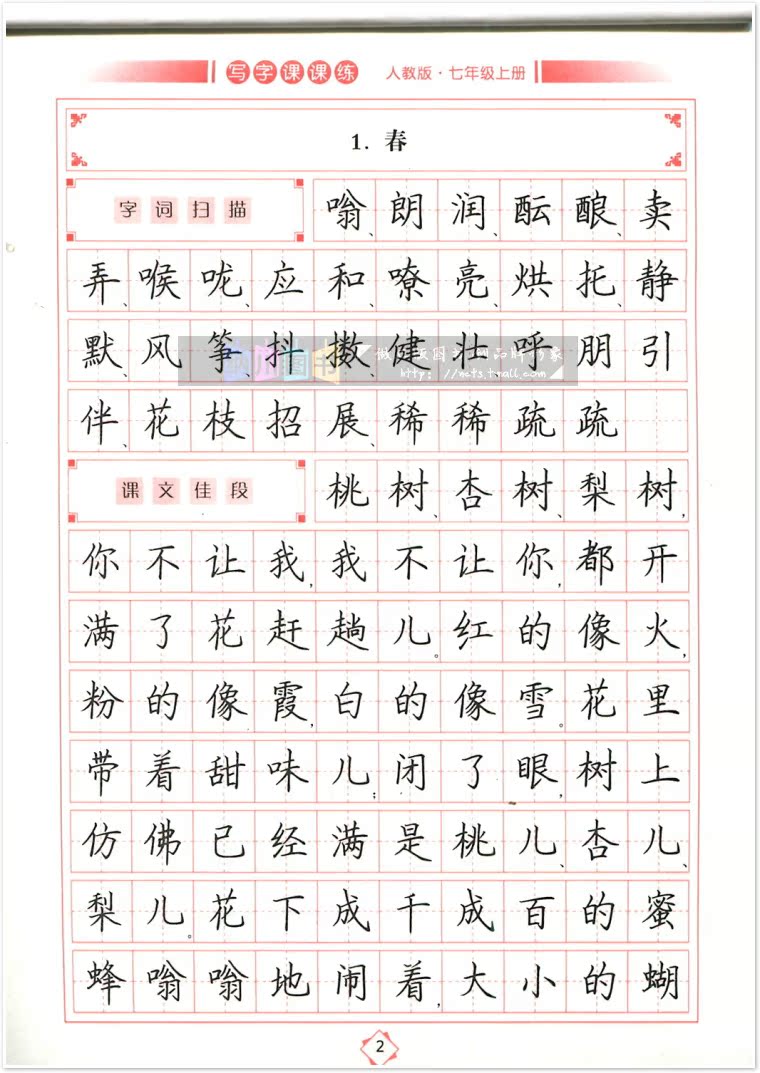 写字课课练 人教版·七年级上册
1. 春
字词扫描
嗡、朗、润、酝、酿、卖
弄、喉、咙、应和、嘹亮、烘托、静
默、风筝、抖擞、健壮、呼朋引
伴、花枝招展、稀稀疏疏
课文佳段
桃树、杏树、梨树,
你不让我,我不让你,都开
满了花赶趟儿。红的像火,
粉的像霞,白的像雪。花里
带着甜味儿;闭了眼,树上
仿佛已经满是桃儿、杏儿、
梨儿。花下成千成百的蜜
蜂嗡嗡地闹着,大小的蝴
2